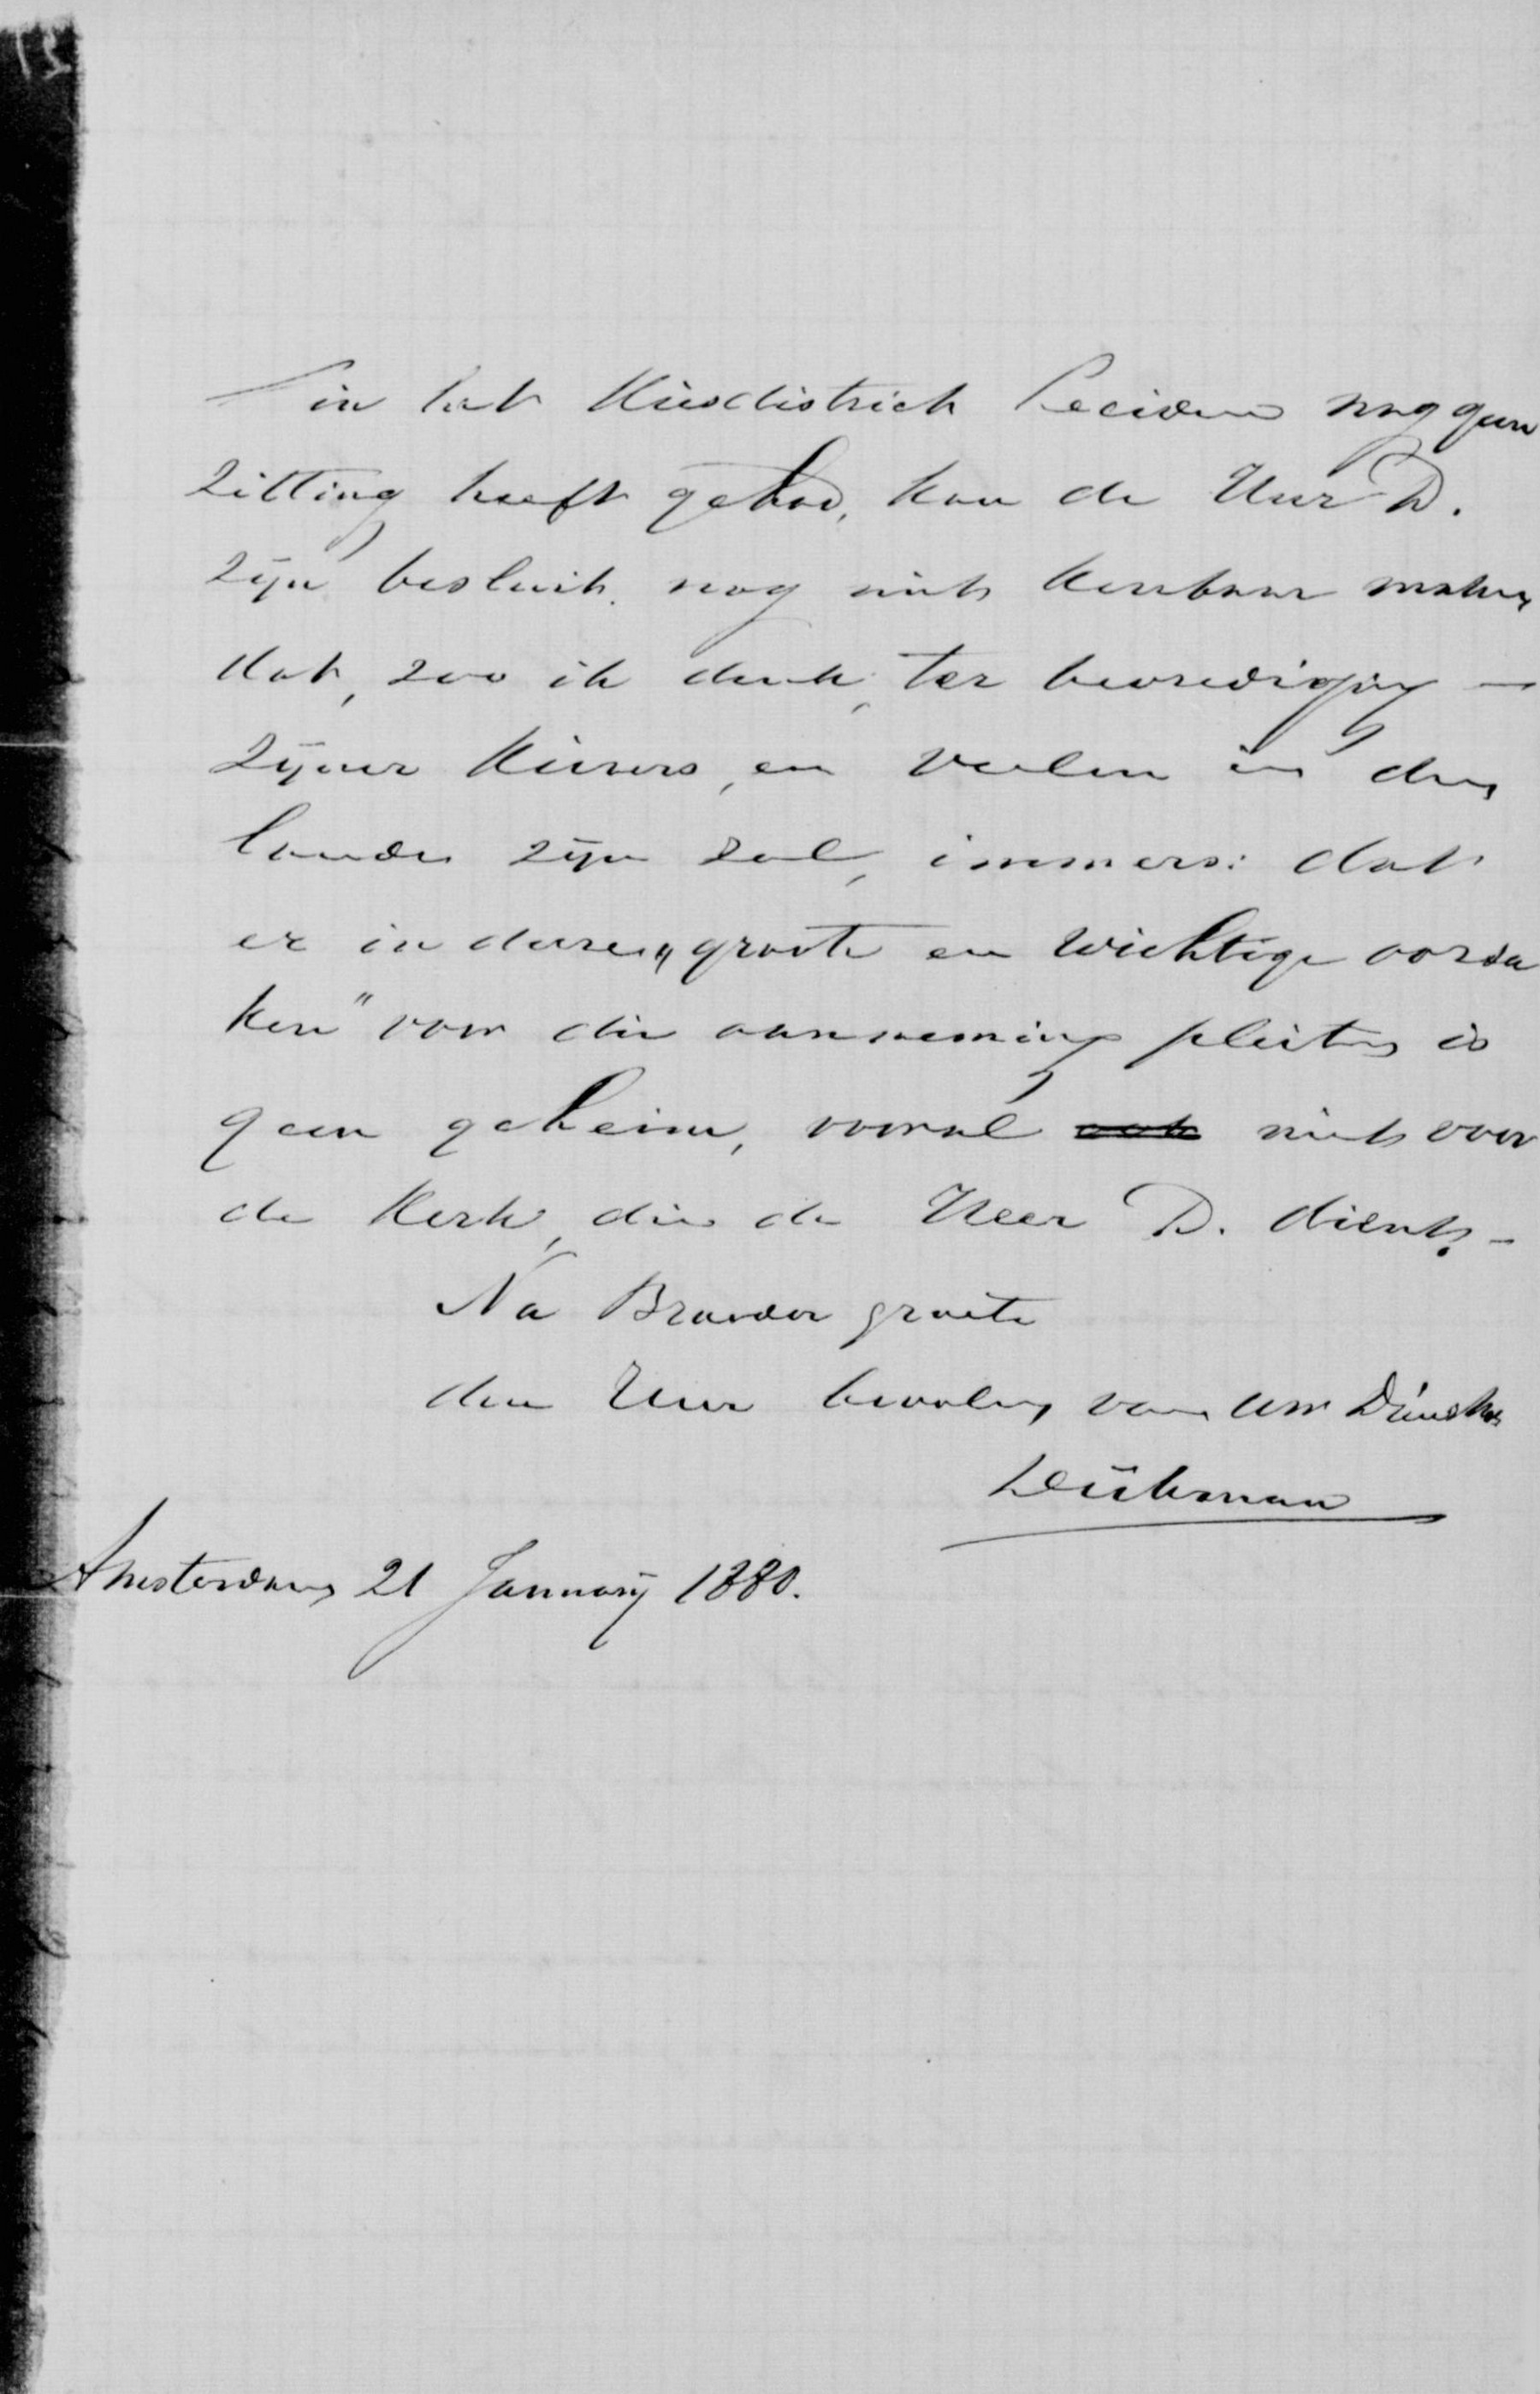 in het Kiesdistrict Leiden nog geen
zitting heeft gehad, kan de Heer D.
zijn besluit nog niet kenbaar maken
dat, zoo ik denk, ter bevrediging –
zijner kiezers, en velen in den
lande zijn zal, immers: dat
er in deze „groote en wichtige oorza
ken" voor die aanneming pleiten is
geen geheim, vooral niet voor
de Kerk, die de Heer D. dient. –
Na Broeder groete
den Heer bevolen van Uw Dienstw
Dijkman
Amsterdam 21 Januarij 1880.